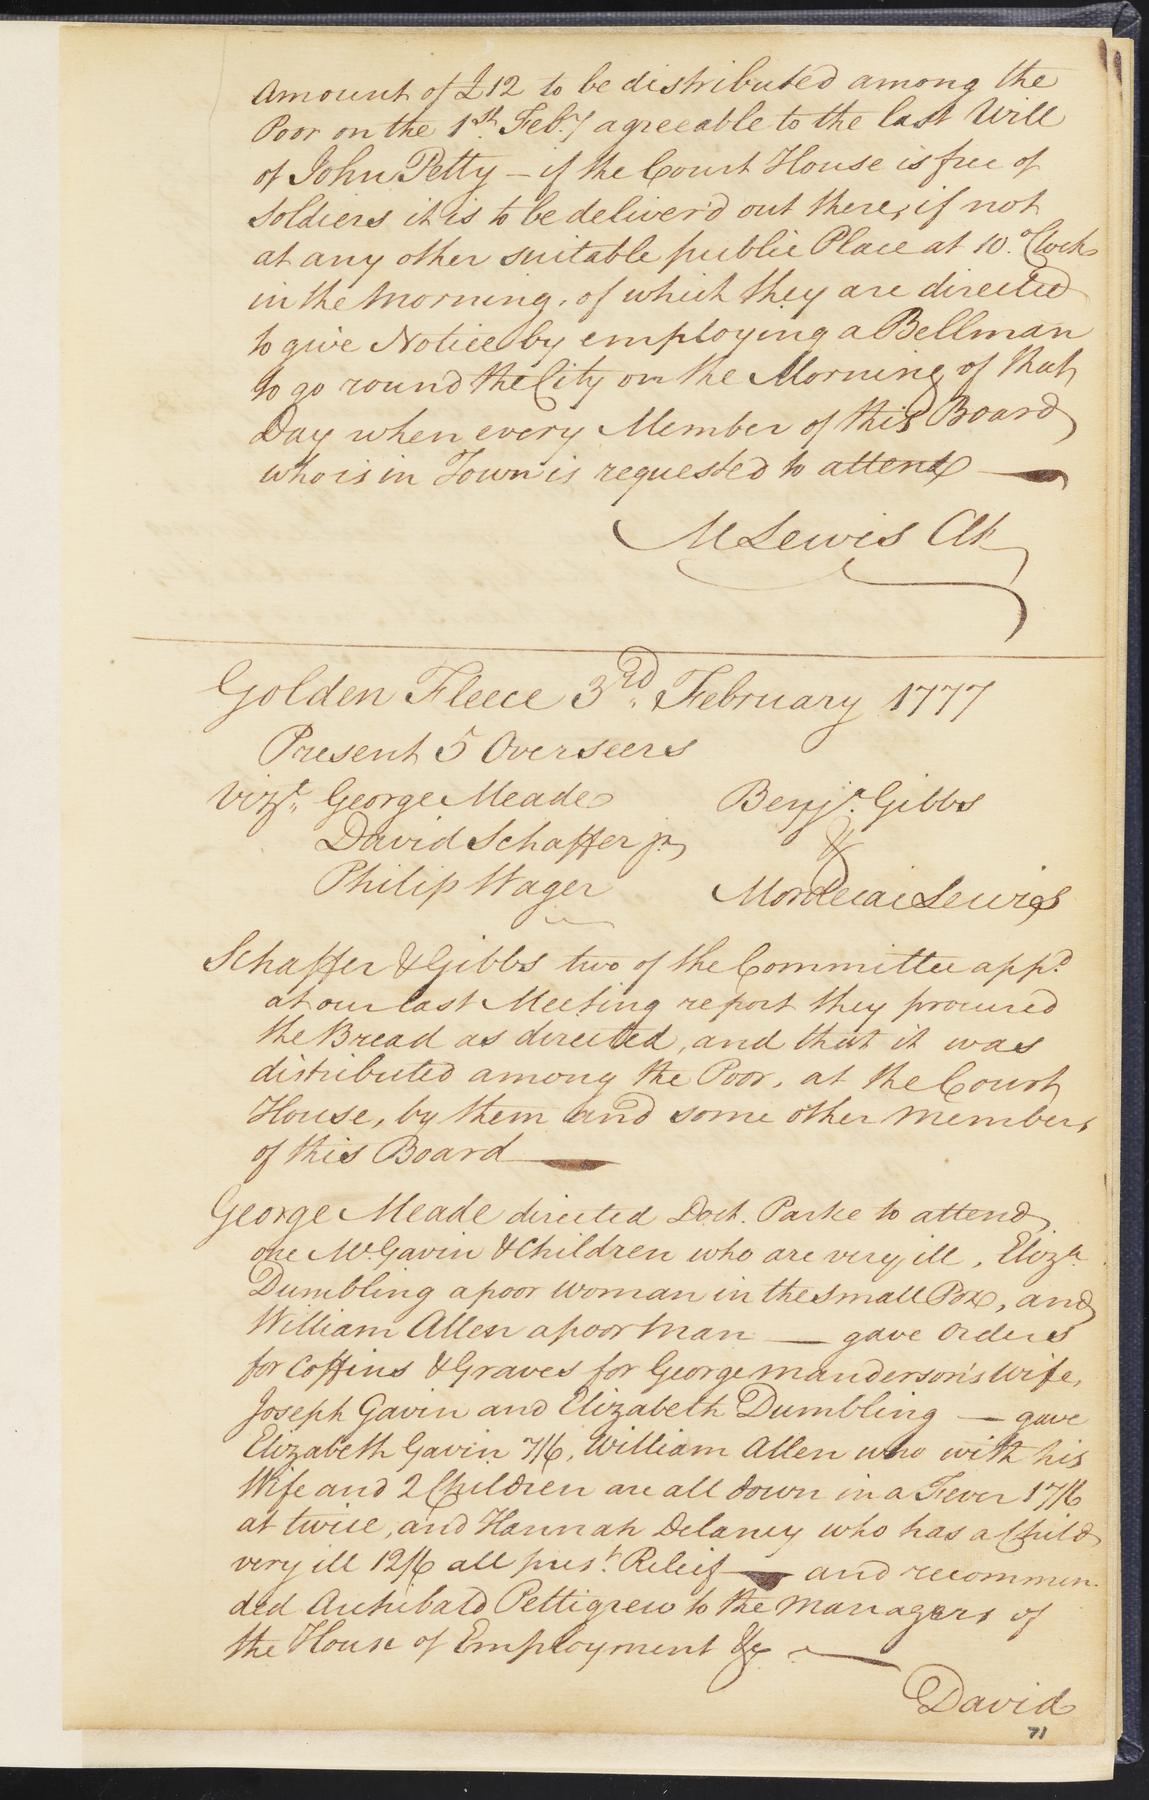 Amount of £12 to be distributed among the
Poor on the 1st. Feb.y agreeable to the last Will
of John Petty – if the Court House is free of
Soldiers it is to be deliver'd out there, if not
at any other suitable public Place at 10 oClock
in the Morning, of which they are directed
to give Notice by employing a Bellman
to go round the City on the Morning of that
Day when every Member of this Board
who is in Town is requested to attend —
M Lewis Clk
Golden Fleece 3rd. February 1777
Present 5 Overseers
Vizt. George Meade Benja. Gibbs
David Schaffer jr &
Philip Wager Mordecai Lewis
Schaffer & Gibbs two of the Committee appd.
at our last Meeting report they procured
the Bread as directed, and that it was
distributed among the Poor, at the Court
House, by them and some other Members
of this Board —
George Meade directed Doct. Parke to attend
one McGavin & Children who are very ill, Eliza.
Dumbling a poor Woman in the Small Pox, and
William Allen a poor Man — gave Orders
for Coffins & Graves for George Manderson's Wife,
Joseph Gavin and Elizabeth Dumbling — gave
Elizabeth Gavin 7/6, William Allen who with his
Wife and 2 Children are all down in a Fever 17/6
at twice, and Hannah Delaney who has a Child
very ill 12/6 all prest. Relief — and recommen-
ded Archibald Pettigrew to the Managers of
the House of Employment &c —
David
71